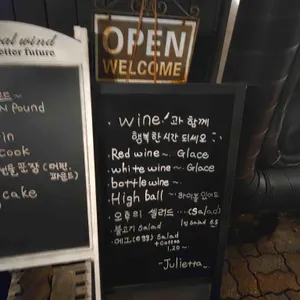 al wind
better future
Pound
in
cook
cake
OPEN
WELCOME
wine과 함께
행복한 시간 되세요
· Red wine ~ Glace
· white wine ~ Glace
· bottle wine ~
· High ball ~ 하이볼 있어요
· 오후의 샐러드 ...(Salad)
· 불고기 Salad
Salad
+ Coffee
1,20 ~
- Julietta